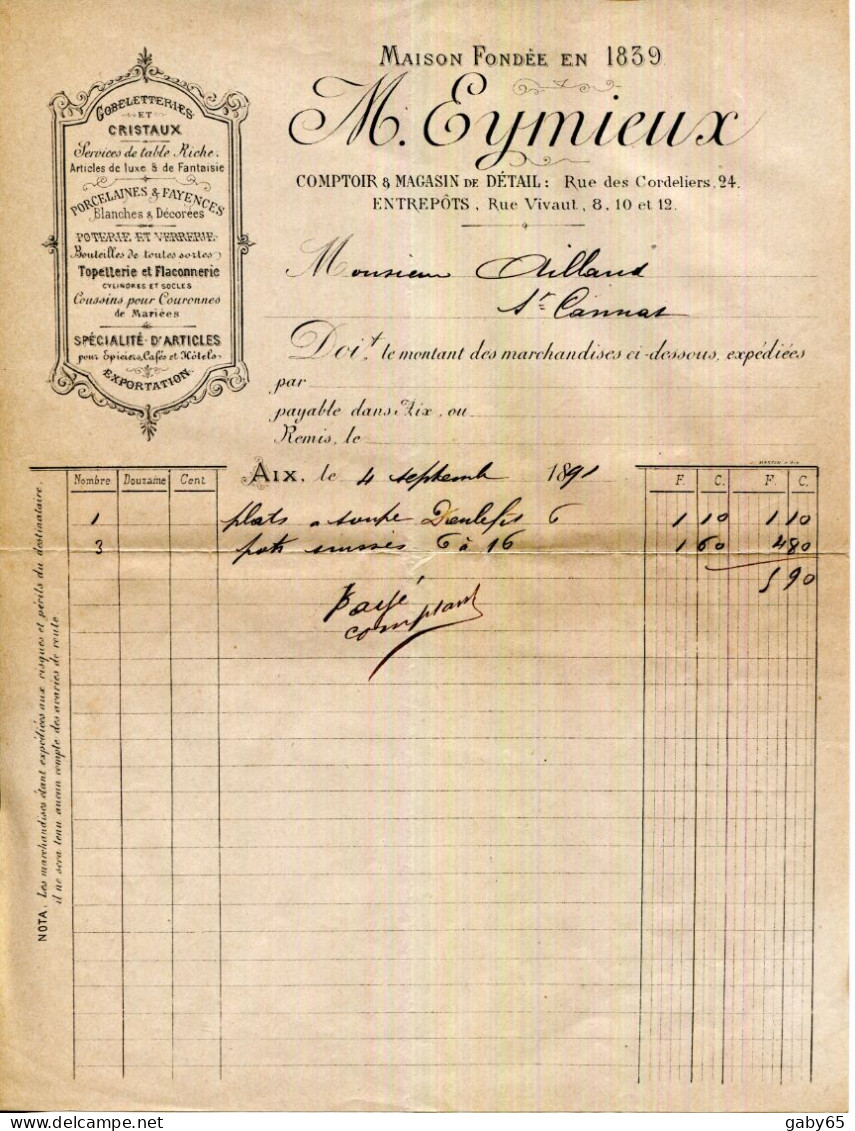 MAISON FONDÉE EN 1839
M. Eymieux
COMPTOIR & MAGASIN DE DÉTAIL: Rue des Cordeliers, 24.
ENTREPÔTS, Rue Vivaut, 8, 10 et 12.
GOBELETTERIES
ET
CRISTAUX
Services de table Riche.
Articles de luxe & de Fantaisie
PORCELAINES & FAYENCES
Blanches & Décorées
POTERIE ET VERRERIE
Bouteilles de toutes sortes
Topetterie et Flaconnerie
CYLINDRES ET SOCLES
Coussins pour Couronnes
de Mariées
SPÉCIALITÉ D'ARTICLES
pour Epiciers, Cafés et Hôtels
EXPORTATION
Monsieur Aillaud
St Cannat
Doit le montant des marchandises ci-dessous, expédiées
par
payable dans Aix, ou
Remis, le
AIX, le 4 septemb 1891
Nombre Douzaine Cent F. C. F. C.
1 plats a soupe Dieulefit 6 1 10 1 10
3 pots suisses 6 à 16 1 60 4 80
5 90
Payé
comptant
NOTA. Les marchandises étant expédiées aux risques et périls du destinataire,
il ne sera tenu aucun compte des avaries de route
gaby65